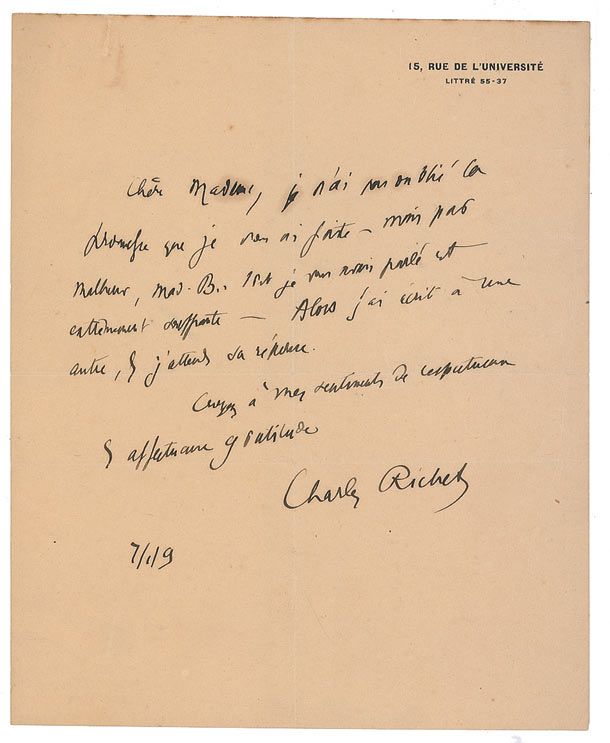 15, RUE DE L'UNIVERSITÉ
LITTRÉ 55-37
Chère Madame, je n'ai pas oublié la
promesse que je vous ai faite — mais par
malheur, Mad. B.. dont je vous avais parlé est
extrêmement souffrante — Alors j'ai écrit à une
autre, & j'attends sa réponse.
Croyez à mes sentiments de respectueuse
& affectueuse gratitude
Charles Richet
7/1/19